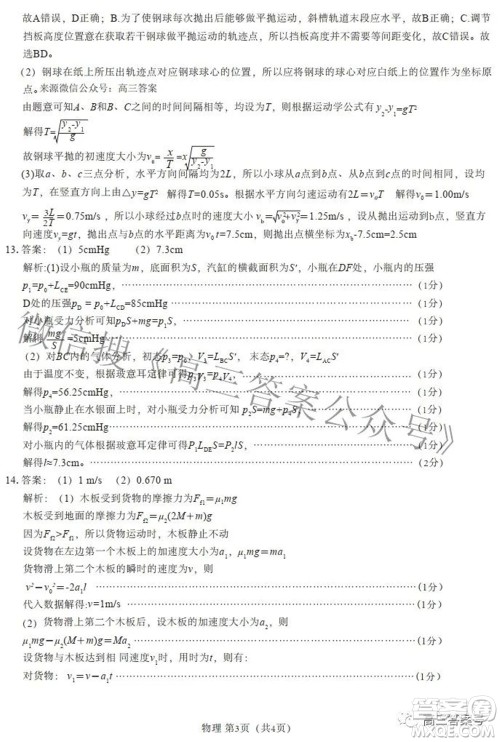 故A错误，D正确；B.为了使钢球每次抛出后能够做平抛运动，斜槽轨道末段应水平，故B正确；C.调节
挡板高度位置意在获取若干钢球做平抛运动的轨迹点，所以挡板高度并不需要等间距变化，故C错误。故
选BD。
(2) 钢球在纸上所压出轨迹点对应钢球球心的位置，所以应将钢球的球心对应白纸上的位置作为坐标原
点。来源微信公众号：高三答案
由题意可知A、B和B、C之间的时间间隔相等，均设为T，则根据运动学公式有 y₂-y₁=gT²
解得T=√((y₂-y₁)/g)
故钢球平抛的初速度大小为v₀=x/T=x√(g/(y₂-y₁))
(3)取a、b、c三点分析，水平方向间隔均为2L，所以小球从a点到b点、从b点到c点的时间相同，均设为
T，在竖直方向上由△y=gT² 解得T=0.05s。根据水平方向匀速运动有2L=v₀T 解得v₀=1.00m/s
所以小球经过b点时的速度大小
13. 答案：（1）5cmHg （2）7.3cm
解析:(1)设小瓶的质量为m，底面积为S，汽缸的横截面积为S′，小瓶在DF处，小瓶内的压强
p₁=p₀+L_CE=90cmHg， (1分)
D处的压强p_D = p₀+L_CD=85cmHg (1分)
对小瓶受力分析可知p_DS+mg=p₁S， (1分)
解得mg/S=5cmHg (1分)
(2) 对BC内的气体分析，初态p₃=p₀，V₃=L_BCS′， 末态p₄=?，V₄=L_ACS′
由于温度不变，根据玻意耳定律可得p₃V₃=p₄V₄， (1分)
解得p₄=56.25cmHg (1分)
当小瓶静止在水银面上时，对小瓶受力分析可知 p₂S=mg+p₄S (1分)
解得p₂=61.25cmHg (1分)
对小瓶内的气体根据玻意耳定律可得P₁L_DES=P₂lS， (1分)
解得l=7.3cm。 (2分)
14. 答案：（1）1 m/s （2）0.670 m
解析：（1）木板受到货物的摩擦力为F_f1=μ₁mg
木板受到地面的摩擦力为F_f2=μ₂(2M+m)g
因为F_f2>F_f1，所以货物运动时，木板静止不动
设货物在左边第一个木板上的加速度大小为a₁，μ₁mg=ma₁
货物滑上第二个木板的瞬时的速度为v，则
v²-v₀²=-2a₁l (1分)
代入数据解得:v=1m/s (1分)
(2) 货物滑上第二个木板后，设木板的加速度大小为a₂，则
μ₁mg-μ₂(M+m)g=Ma₂ (1分)
设货物与木板达到相 同速度v₁时，用时为t，则有：
对货物：v₁=v-a₁t (1分)
物理 第3页（共4页）
微信搜《高三答案公众号》
高三答案号